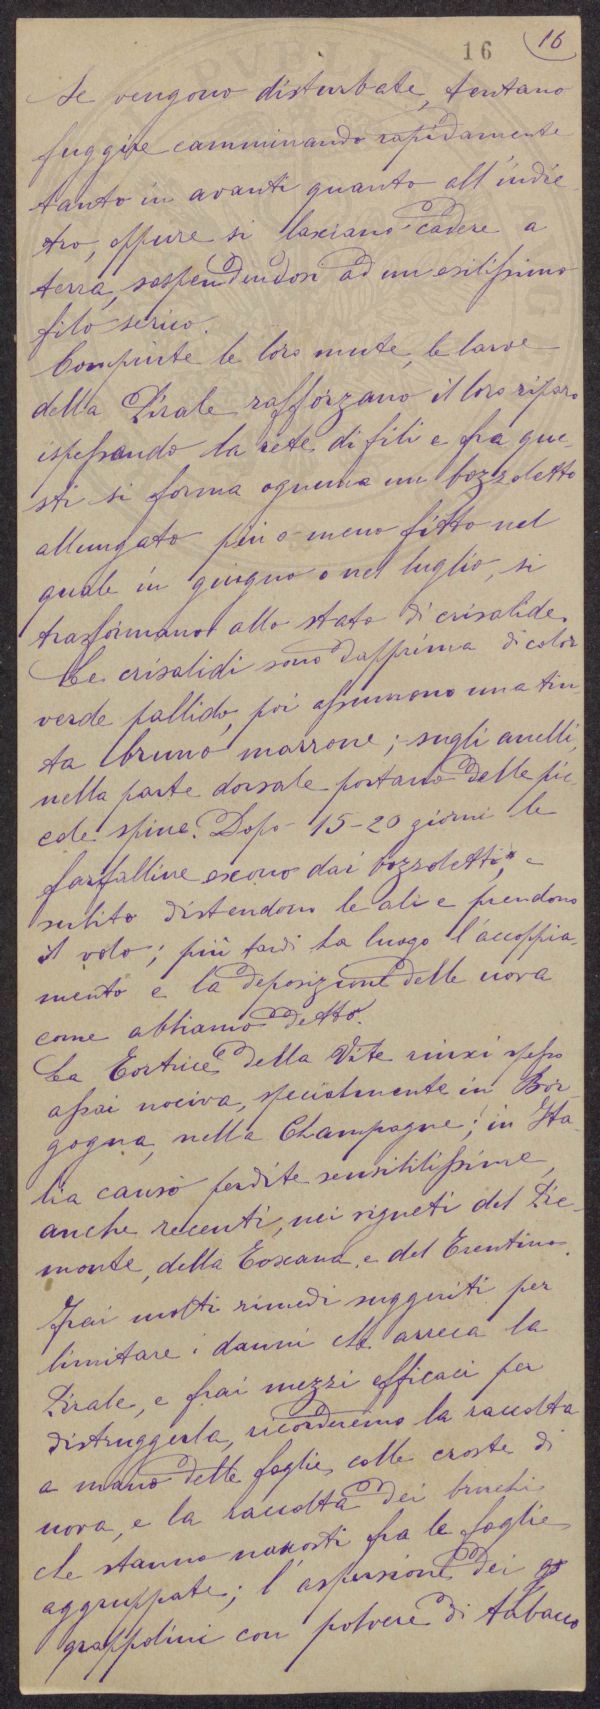 16 16
Se vengono disturbate, tentano
fuggire camminando rapidamente
tanto in avanti quanto all'indie-
tro, oppure si lasciano cadere a
terra, sospendendosi ad un esilissimo
filo serico.
Compiute le loro mute, le larve
della Pirale rafforzano il loro riparo
ispessando la rete di fili e fra que-
sti si forma ognuna un bozzoletto
allungato più o meno fitto nel
quale in giugno o nel luglio, si
trasformano allo stato di crisalide.
Le crisalidi sono dapprima di color
verde pallido, poi assumono una tin-
ta bruno marrone; sugli anelli,
nella parte dorsale portano delle pic-
cole spine. Dopo 15-20 giorni le
farfalline escono dai bozzoletti, e
subito distendono le ali e prendono
il volo; più tardi ha luogo l'accoppia-
mento e la deposizione delle uova
come abbiamo detto.
La Tortrice della Vite riuscì spesso
assai nociva, specialmente in Bor-
gogna, nella Champagne; in Ita-
lia causò perdite sensibilissime,
anche recenti, nei vigneti del Pie-
monte, della Toscana e del Trentino.
Frai molti rimedi suggeriti per
limitare i danni che arreca la
Pirale, e frai mezzi efficaci per
distruggerla, ricorderemo la raccolta
a mano delle foglie colle croste di
uova, e la raccolta dei bruchi
che stanno nascosti fra le foglie
aggruppate; l'aspersione dei
grappolini con polvere di tabacco